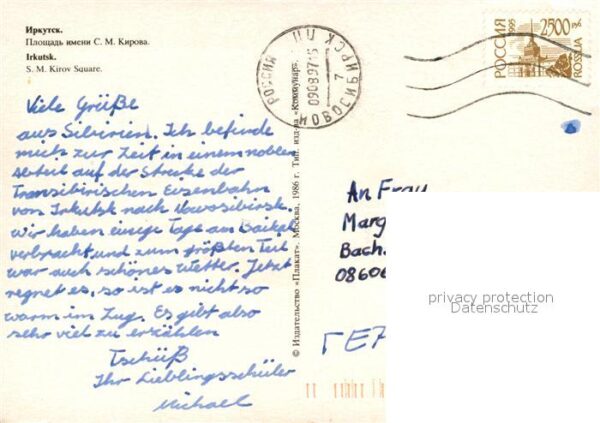 Иркутск.
Площадь имени С. М. Кирова.
Irkutsk.
S. M. Kirov Square.
Viele Grüße
aus Sibirien. Ich befinde
mich zur Zeit in einem noblen
Abteil auf der Strecke der
Transibirischen Eisenbahn
von Irkutsk nach Nowosibirsk.
Wir haben einige Tage am Baikal
verbracht und zum größten Teil
war auch schönes Wetter. Jetzt
regnet es, so ist es nicht so
warm im Zug. Es gibt also
sehr viel zu erzählen
Tschüß
Ihr Lieblingsschüler
Michael
© Издательство «Плакат». Москва. 1986 г. Тип. изд-ва «Коммунар».
РОССИЯ
НОВОСИБИРСК
7
РОССИЯ 1995
2500 руб.
ROSSIJA
An Frau
Marg
Bach.
08606
privacy protection
Datenschutz